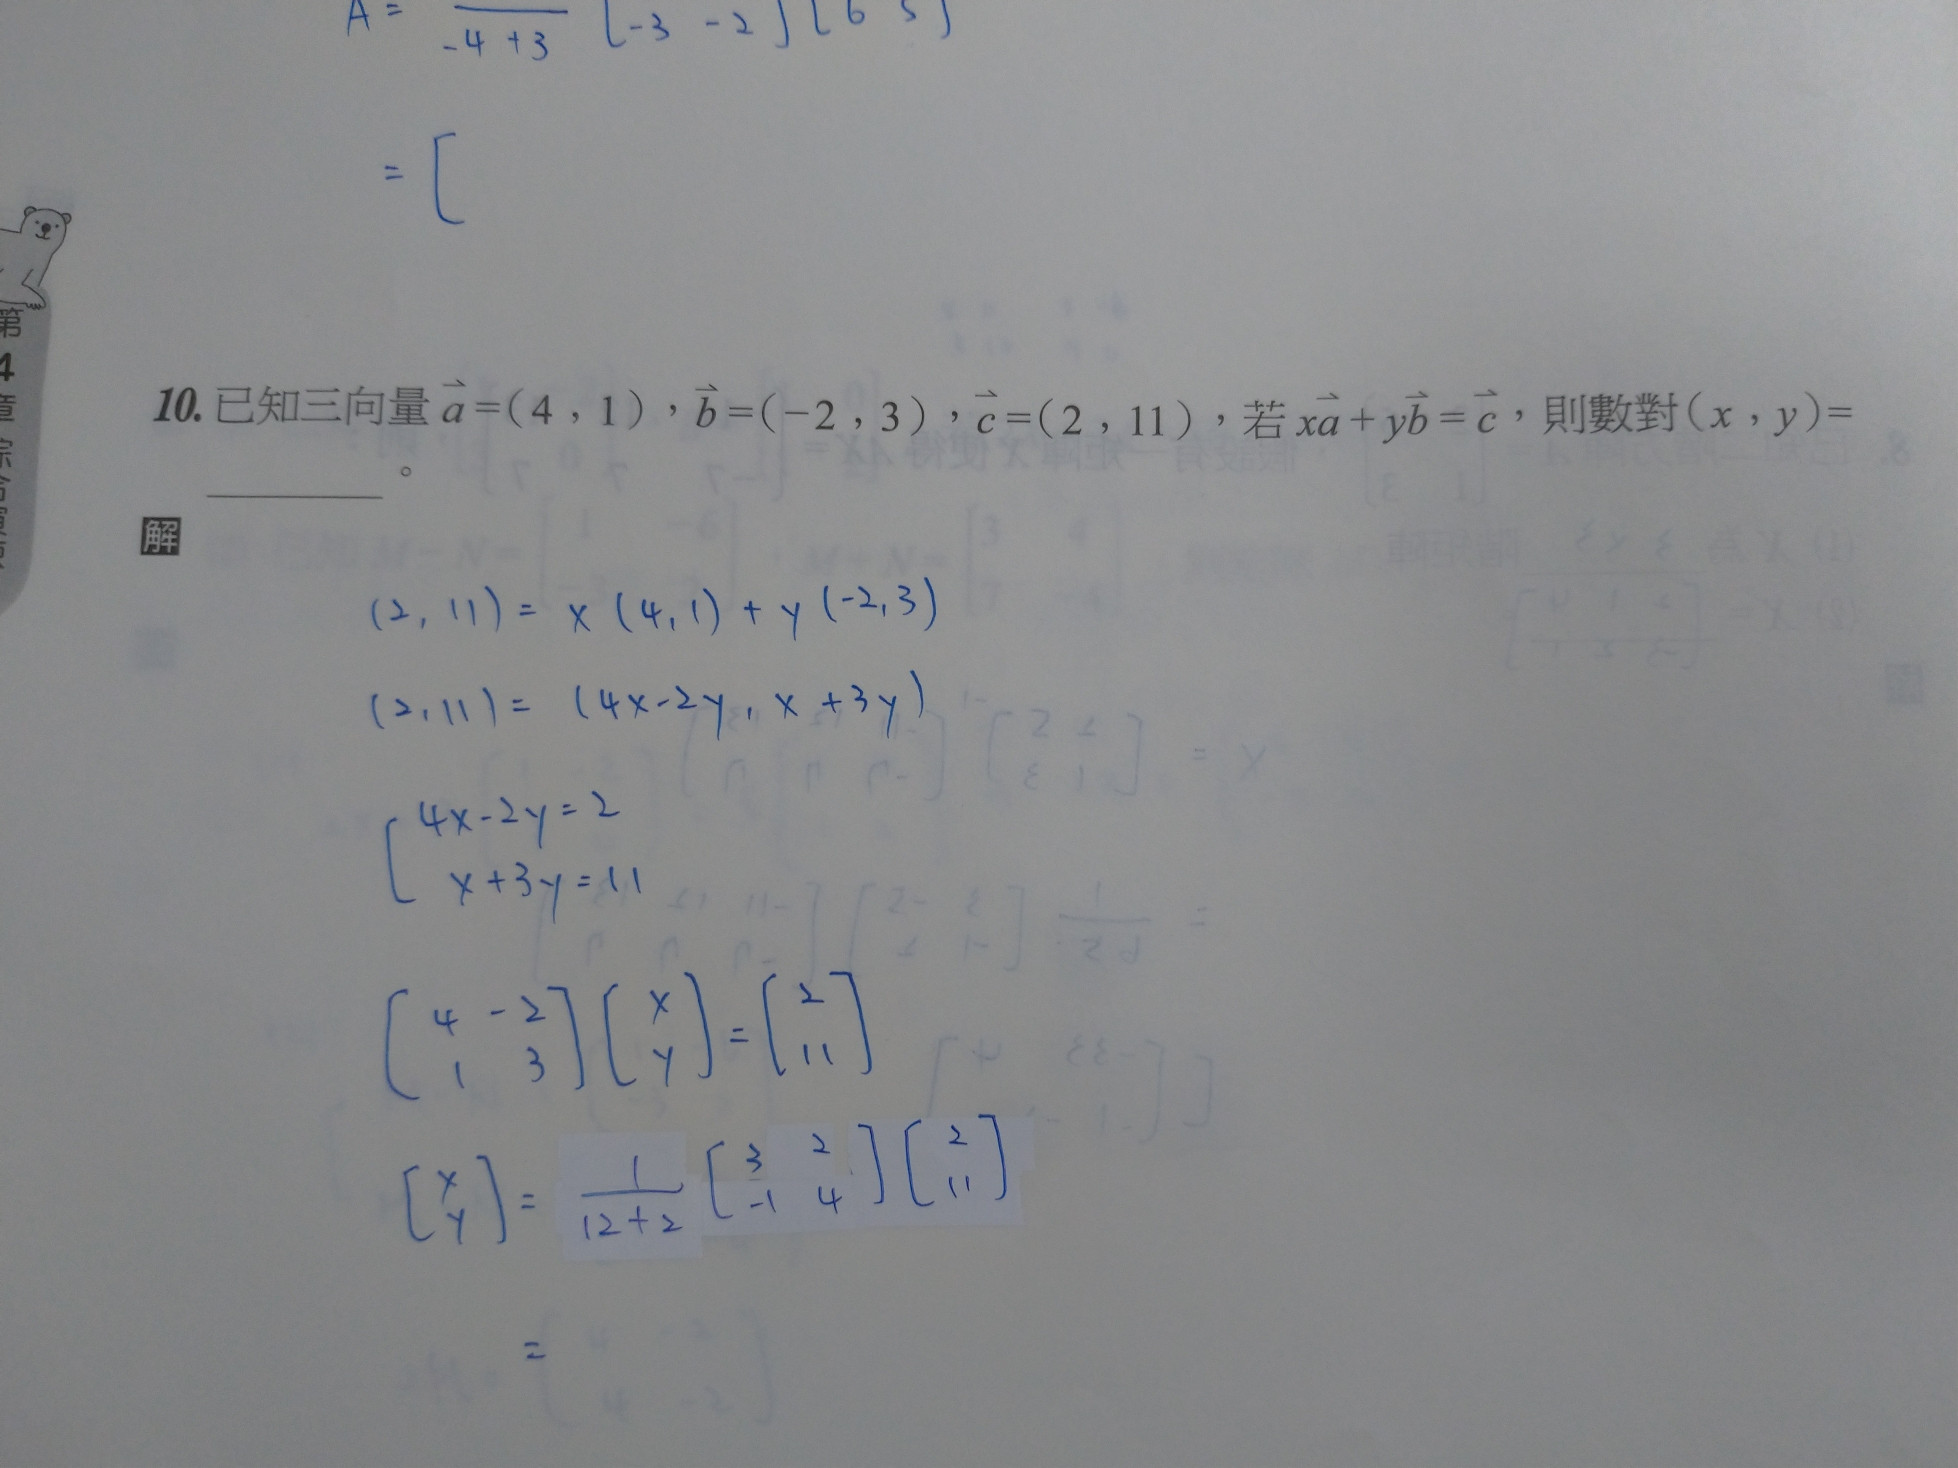 A = -4+3 [-3 -2] [6 5]
= [
第4章 綜合
10. 已知三向量 a⃗=(4,1),b⃗=(-2,3),c⃗=(2,11),若 xa⃗+yb⃗=c⃗,則數對(x,y)=
________。
解
(2, 11) = x (4,1) + y (-2,3)
(2,11) = (4x-2y, x+3y)
[ 4x-2y=2
x+3y=11
[4 -2
1 3] [x
y] = [2
11]
[x
y] = 1/(12+2) [3 2
-1 4] [2
11]
=